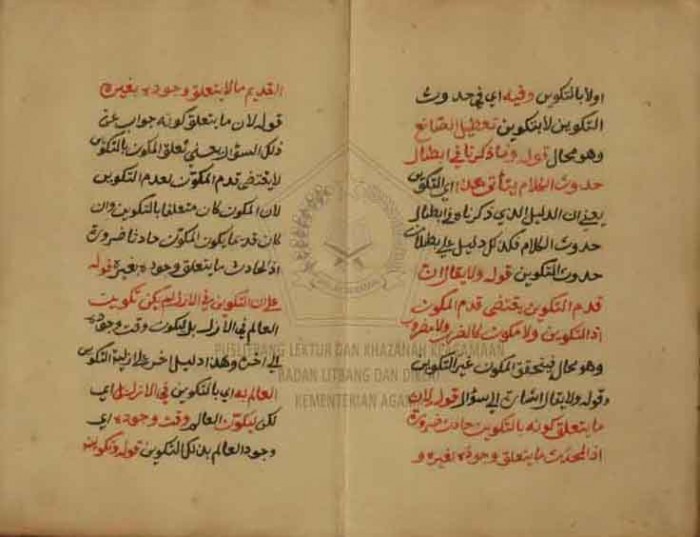 اولا بالتكوين وفيه اي في حدوث
التكوين لا بتكوين تعطيل الصانع
وهو محال قوله وما ذكرنا في ابطال
حدوث الكلام يتأتى هنا اي التكوين
يعني ان الدليل الذي ذكرنا في ابطال
حدوث الكلام فكذلك دليل على بطلان
حدوث التكوين قوله ولا يقال ان
قدم التكوين يقتضي قدم المكون
اذ التكوين ولا مكون كالضرب ولا مضروب
وهو محال فيتحقق المكون غير التكوين
وقوله ولا يقال اشارة الى سؤال قوله لان
ما يتعلق كونه بالتكوين حادث ضرورة
اذ المحدث ما يتعلق وجوده بغيره و
القديم ما لا يتعلق وجوده بغيره
قوله لان ما يتعلق كونه جواب عن
ذلك السؤال يعني تعلق المكون بالتكوين
لا يقتضي قدم المكون لعدم التكوين
لان المكون كان متعلقا بالتكوين وان
كان قديما يكون المكون حادثا ضرورة
اذ الحادث ما يتعلق وجوده بغيره قوله
على ان التكوين في الازل لم يكن تكوين
العالم في الازل بل ليكون وقت وجوده
الى اخره وهذا دليل اخر على ازلية التكوين
العالم به اي بالتكوين في الازل بل اي
لكن ليكون العالم وقت وجوده اي
وجود العالم بذلك التكوين قوله وتكوينه
PUSLITBANG LEKTUR DAN KHAZANAH KEAGAMAAN
BADAN LITBANG DAN DIKLAT
KEMENTERIAN AGAMA